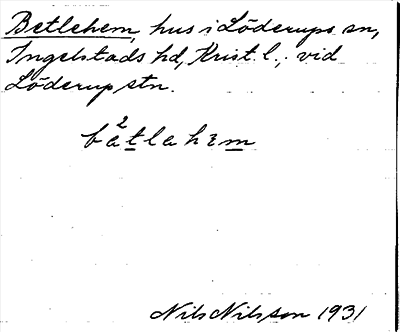 Betlehem, hus i Löderups sn,
Ingelstads hd, Krist. l., vid
Löderup stn.
2
bätlahɛm
Nils Nilsson 1931